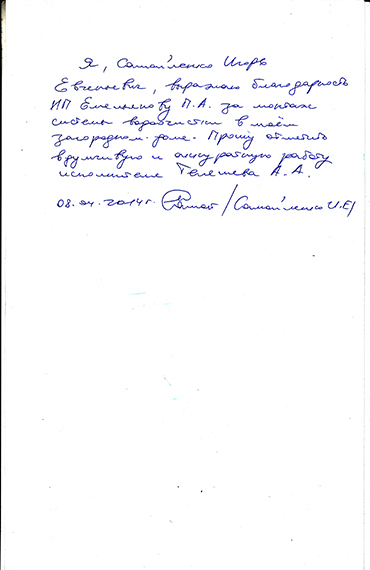 Я, Самойленко Игорь
Евгеньевич, выражаю благодарность
ИП Емельянову П.А. за монтаж
системы водоочистки в моём
загородном доме. Прошу отметить
вдумчивую и аккуратную работу
исполнителя Телешева А.А.
08.04.2014г. /Самойленко И.Е/